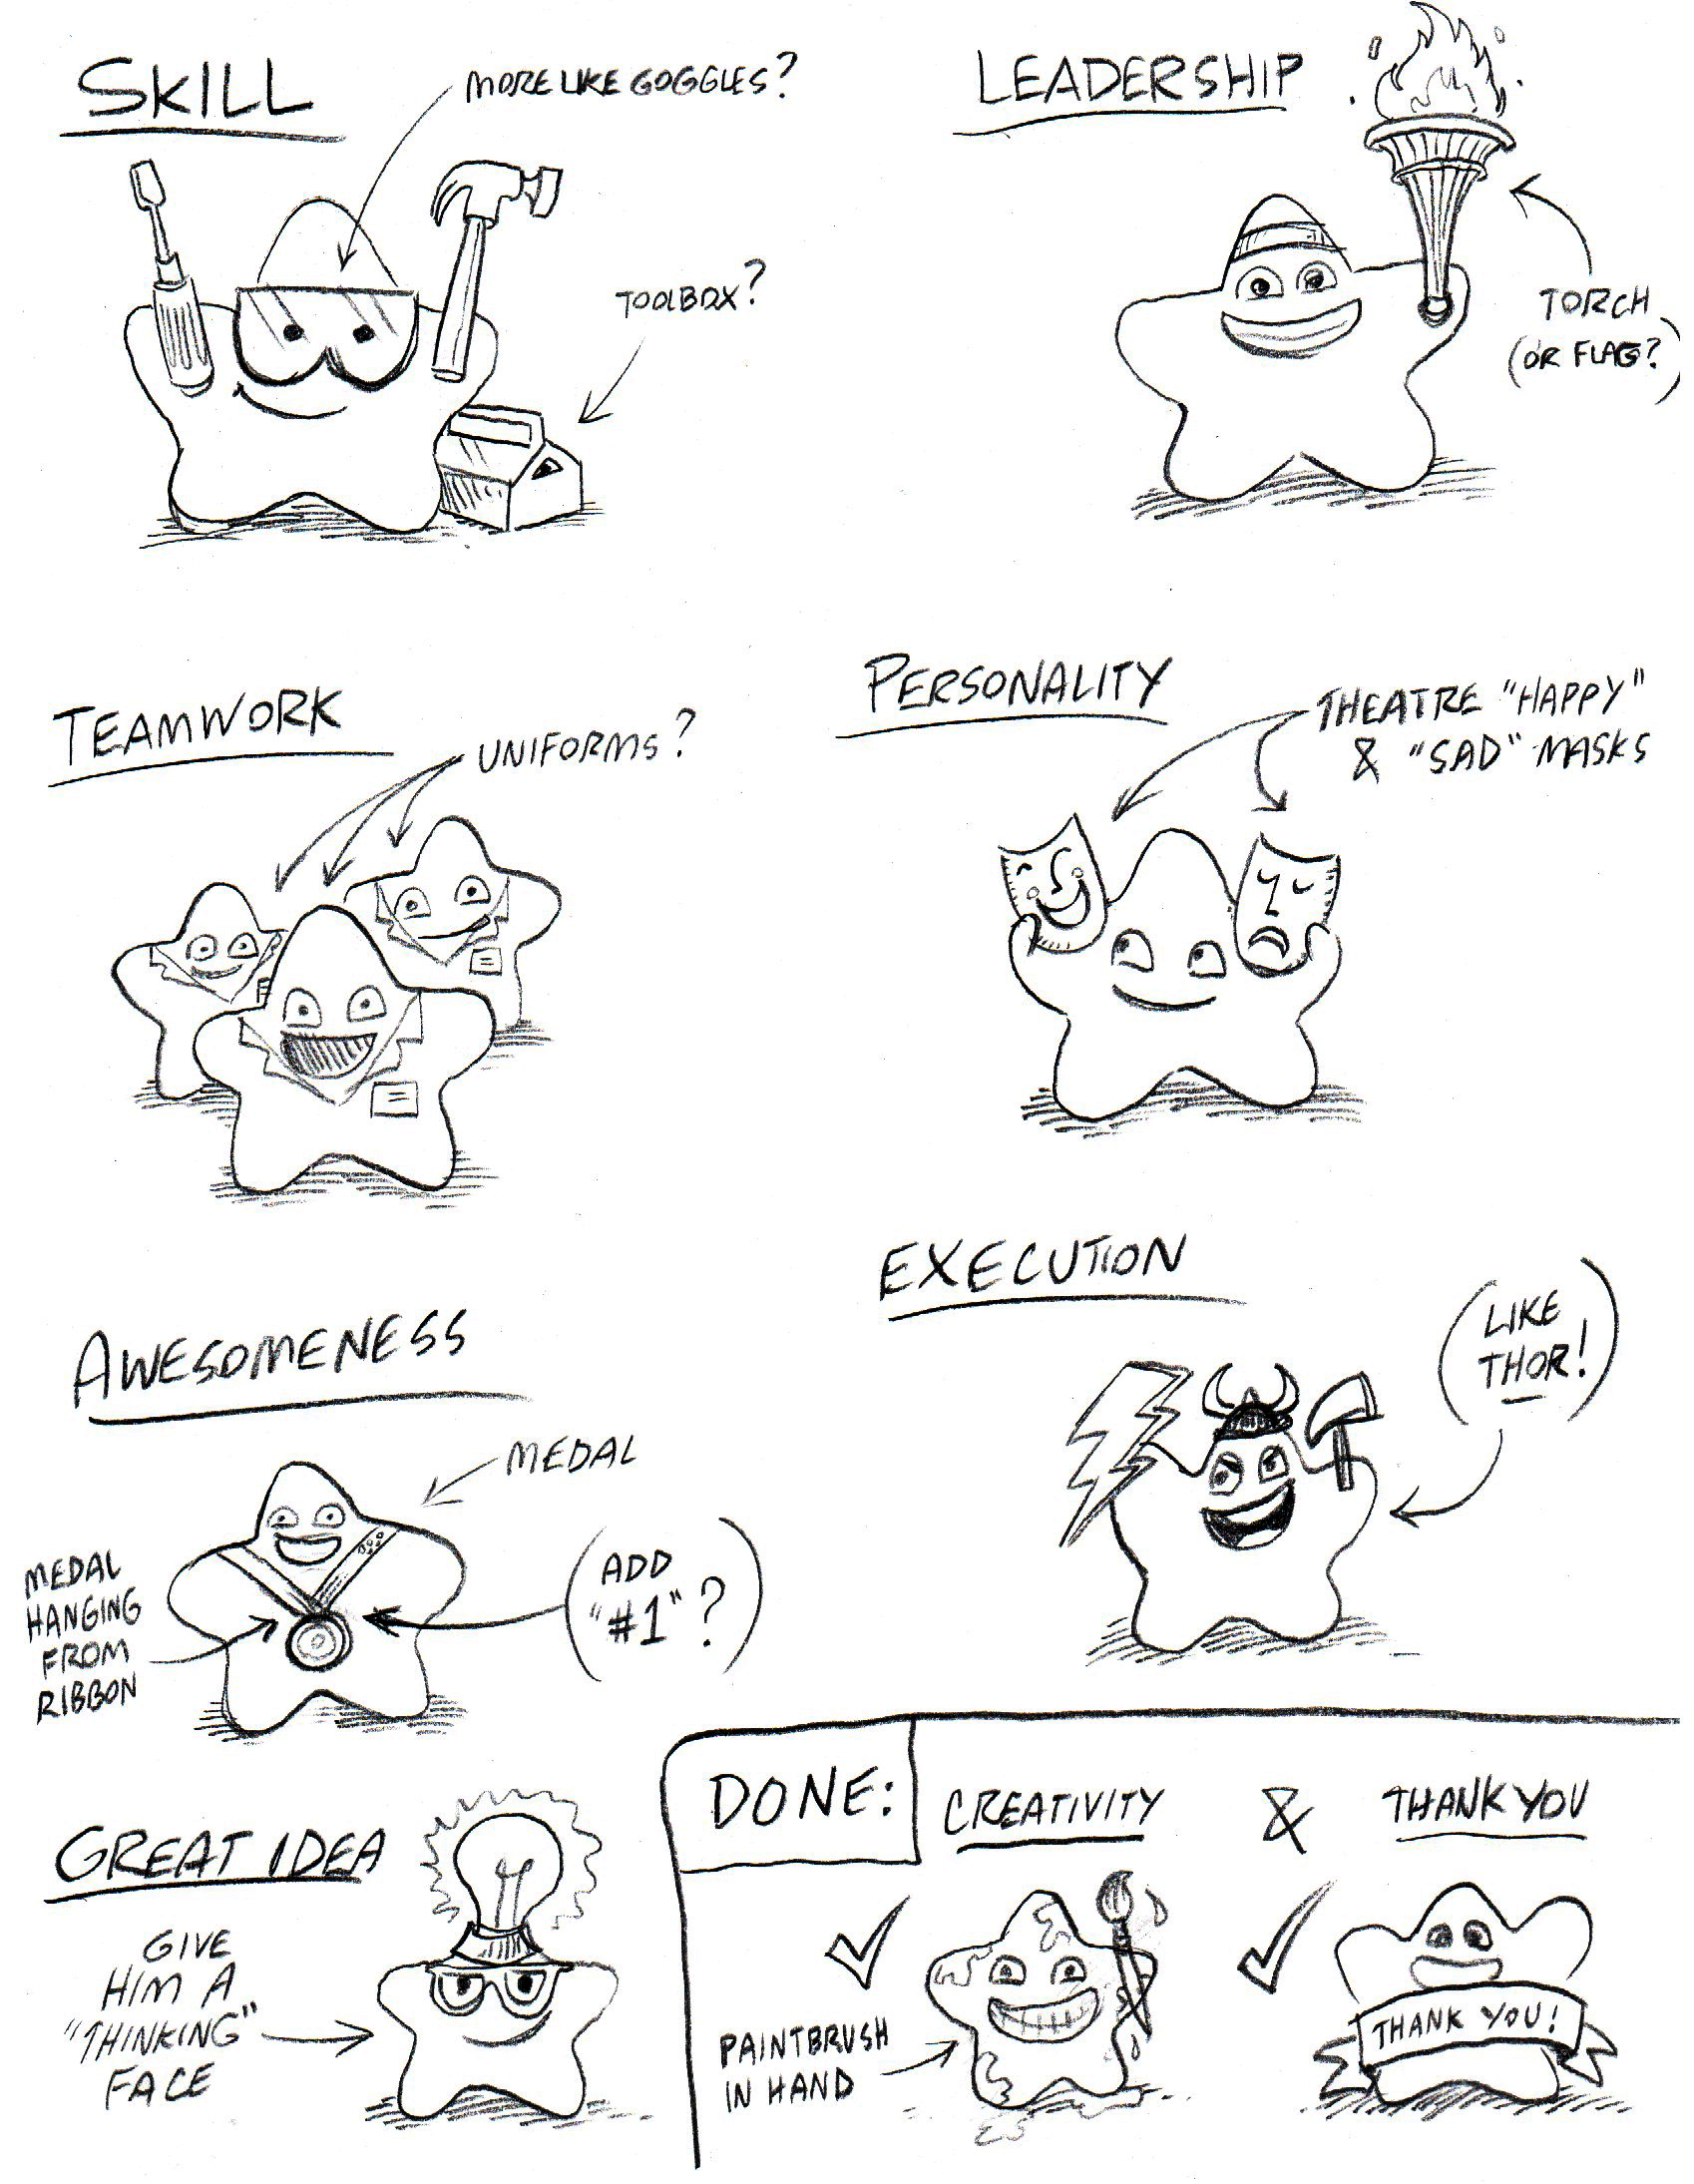 SKILL
MORE LIKE GOGGLES?
TOOLBOX?
LEADERSHIP
TORCH
(OR FLAG?)
TEAMWORK
UNIFORMS?
PERSONALITY
THEATRE "HAPPY"
& "SAD" MASKS
AWESOMENESS
MEDAL
MEDAL
HANGING
FROM
RIBBON
(ADD
"#1"?)
EXECUTION
(LIKE
THOR!)
GREAT IDEA
GIVE
HIM A
"THINKING"
FACE
DONE:
CREATIVITY & THANK YOU
PAINTBRUSH
IN HAND
THANK YOU!